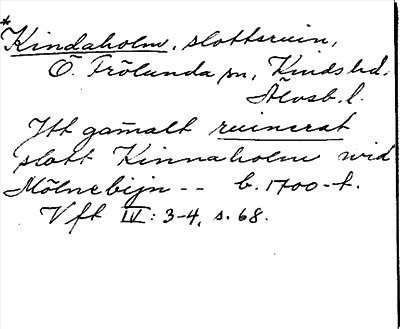 *
Kindaholm, slottsruin,
Ö. Frölunda sn, Kinds hd.
Älvsb. l.
Itt gamalt ruinerat
slott Kinnaholm wid
Mölnebijn -- b. 1700-t.
Vft IV: 3-4, s. 68.